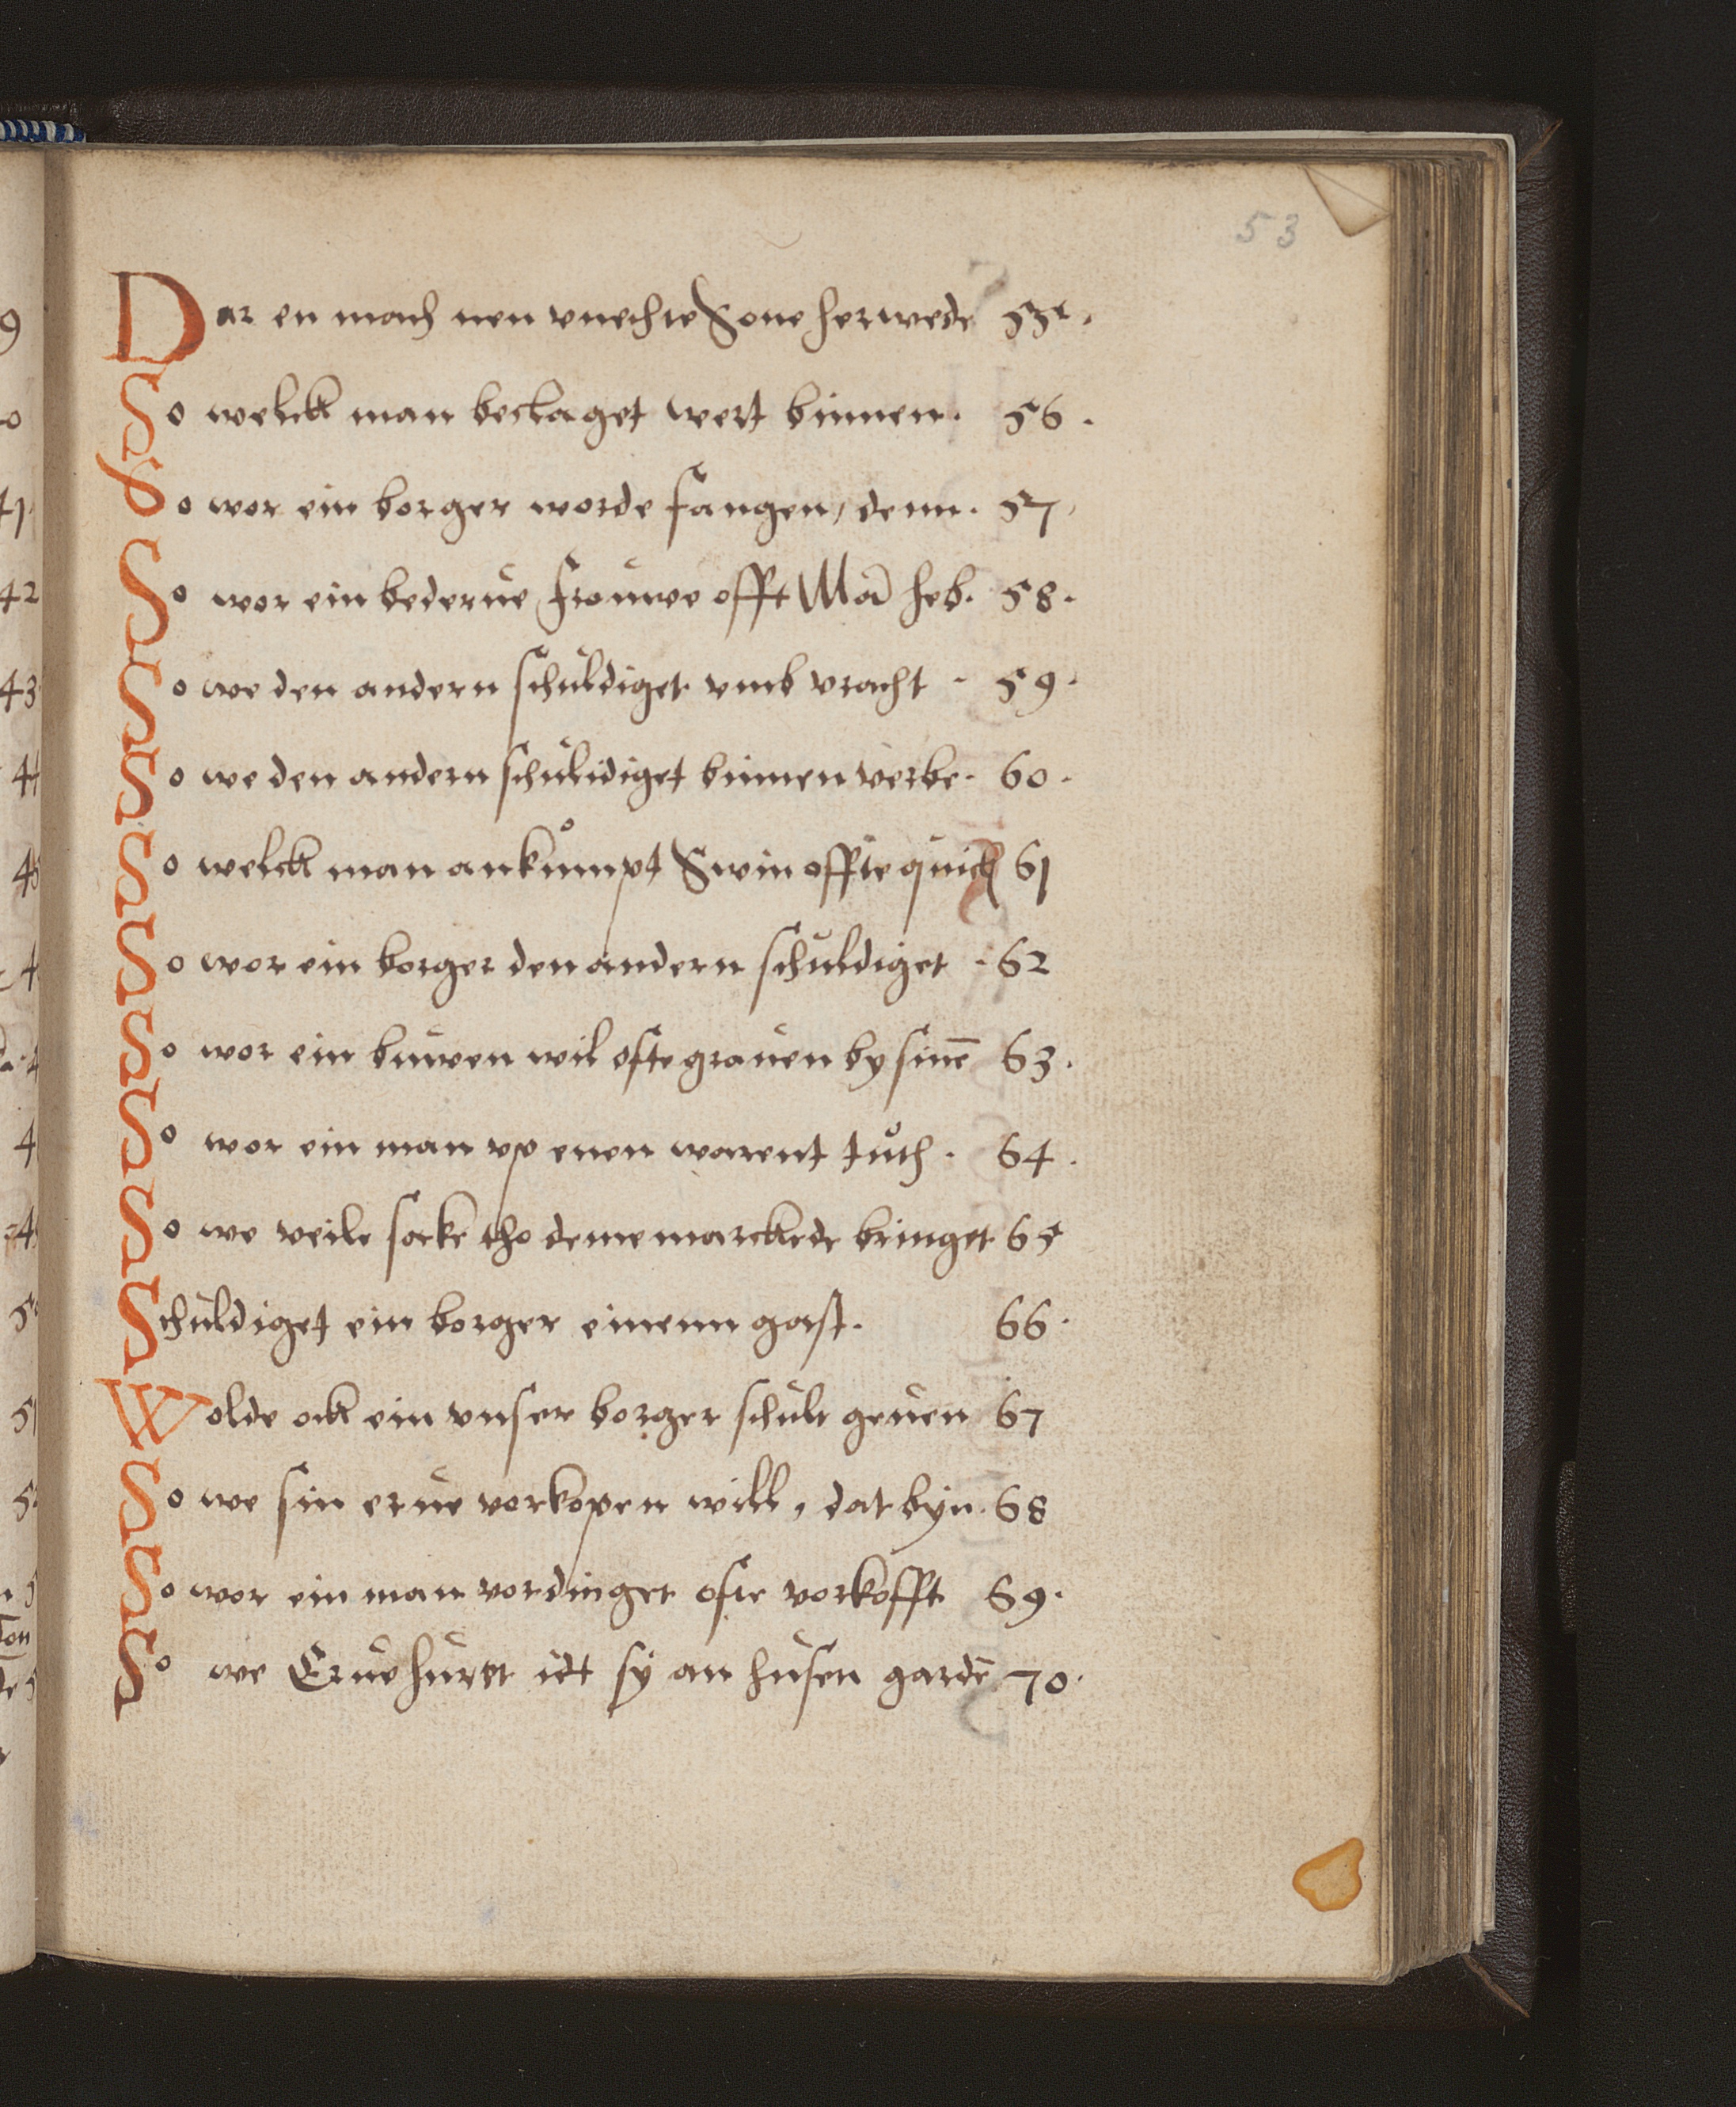 53
Dar en mach nen vnechte Sone herwede 55.
So welck man beclaget wert binnen. 56.
So wor ein borger worde fangen, denn. 57.
So wor ein bederue frouwe offt Mā heb. 58.
So we den andern schuldiget vmb vracht. 59.
So we den andern schulidiget binnen verbe. 60.
So welck man ankumpt Swin offte quick 61
So wor ein borger den andern schuldiget. 62
So wor ein buwen wil ofte grauen by sinē 63.
So wor ein man vp enen warent tuth. 64.
So we veile sake tho deme marckede bringet 65
Schuldiget ein borger einenn gast. 66.
Wolde ock ein vnser borger schult geuen 67
So we sin erue vorkopen will, dat byn. 68
So wor ein man vordinget ofte vorkofft 69.
So we Erue huret idt sy an husen gardē 70.
9
41.
42
43
44
51